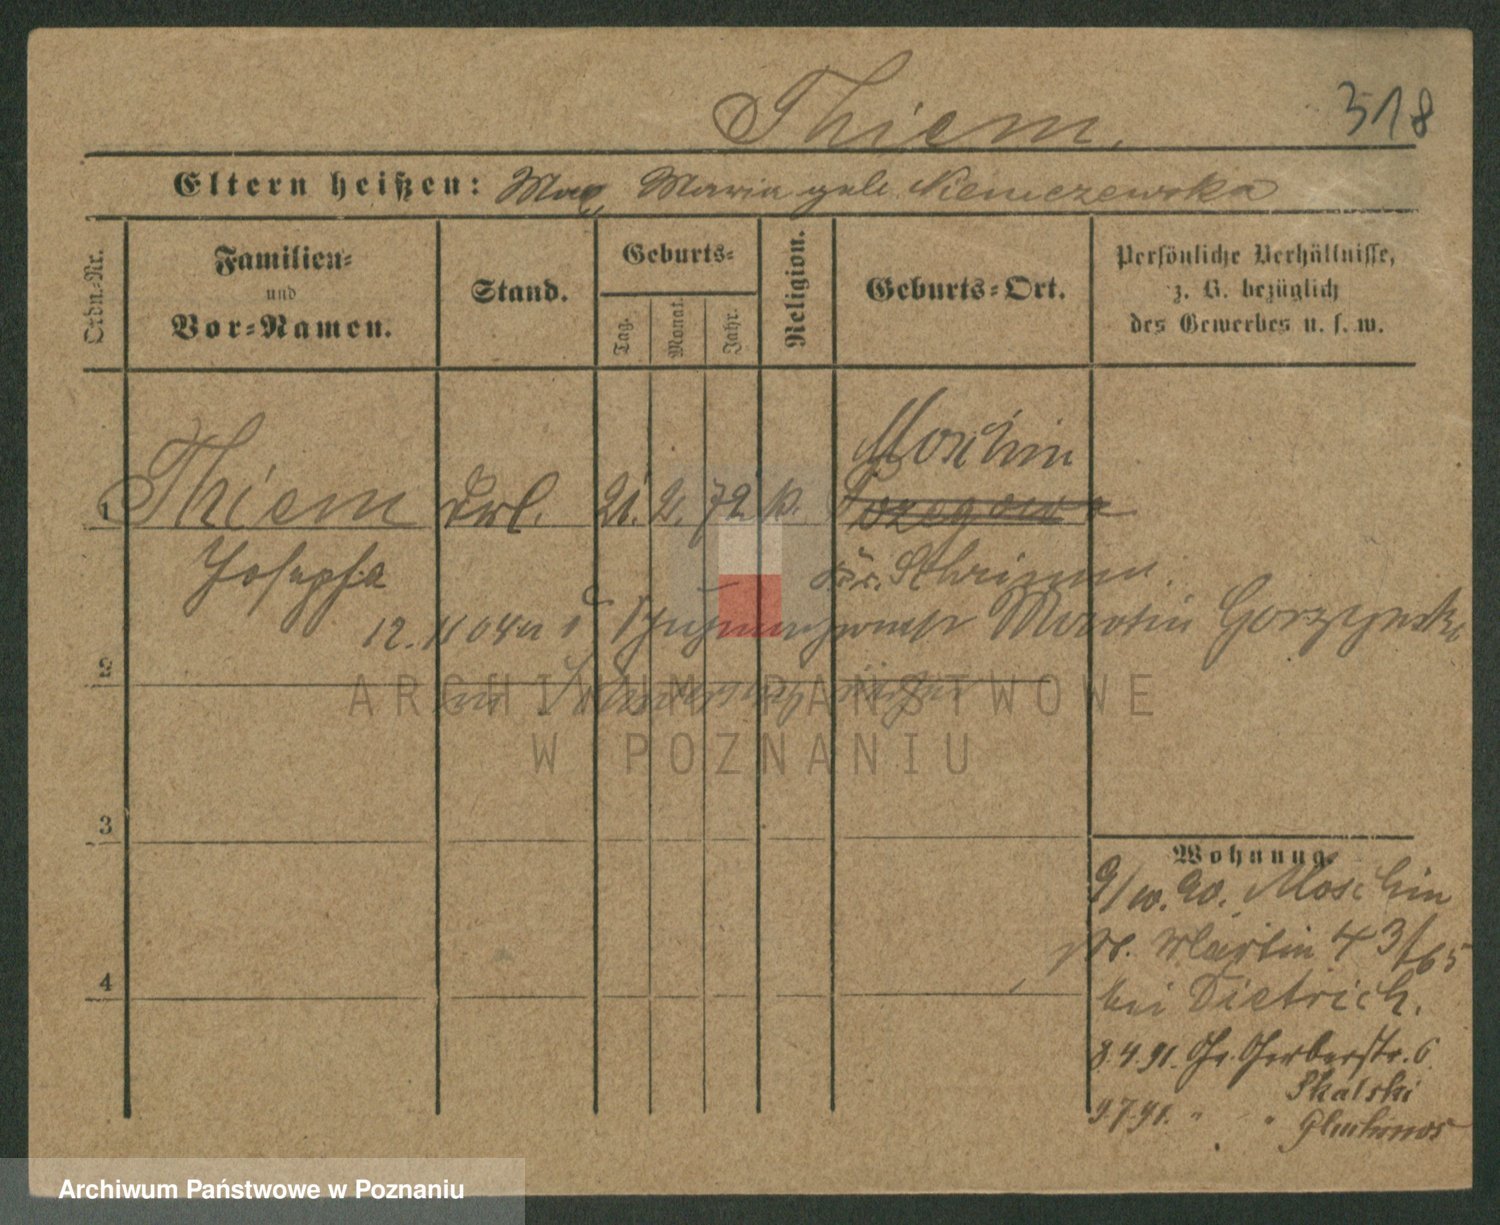 Thiem.
318
Eltern heißen: Max, Maria geb. Niemczewska
Ordn.-Nr.
Familien-
und
Vor-Namen.
Stand.
Geburts-
Tag.
Monat.
Jahr.
Religion.
Geburts-Ort.
Persönliche Verhältnisse,
z. B. bezüglich
des Gewerbes u. s. w.
Moschin
1 Thiem Frl. 21. 2. 72 k.
Josepha
Kr. Schrimm.
12. 11 04 Martin Gorzynski
2
ARCHIWUM PAŃSTWOWE
W POZNANIU
3
Wohnung.
9/10. 90. Moschin
St. Martin 43/65
4
bei Dietrich.
8.4.91. Gr. Gerberstr. 6
Skalski
9.7.91. " "
Archiwum Państwowe w Poznaniu